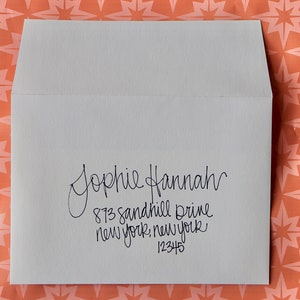 Sophie Hannah
873 Sandhill Drive
new york, new york
12345